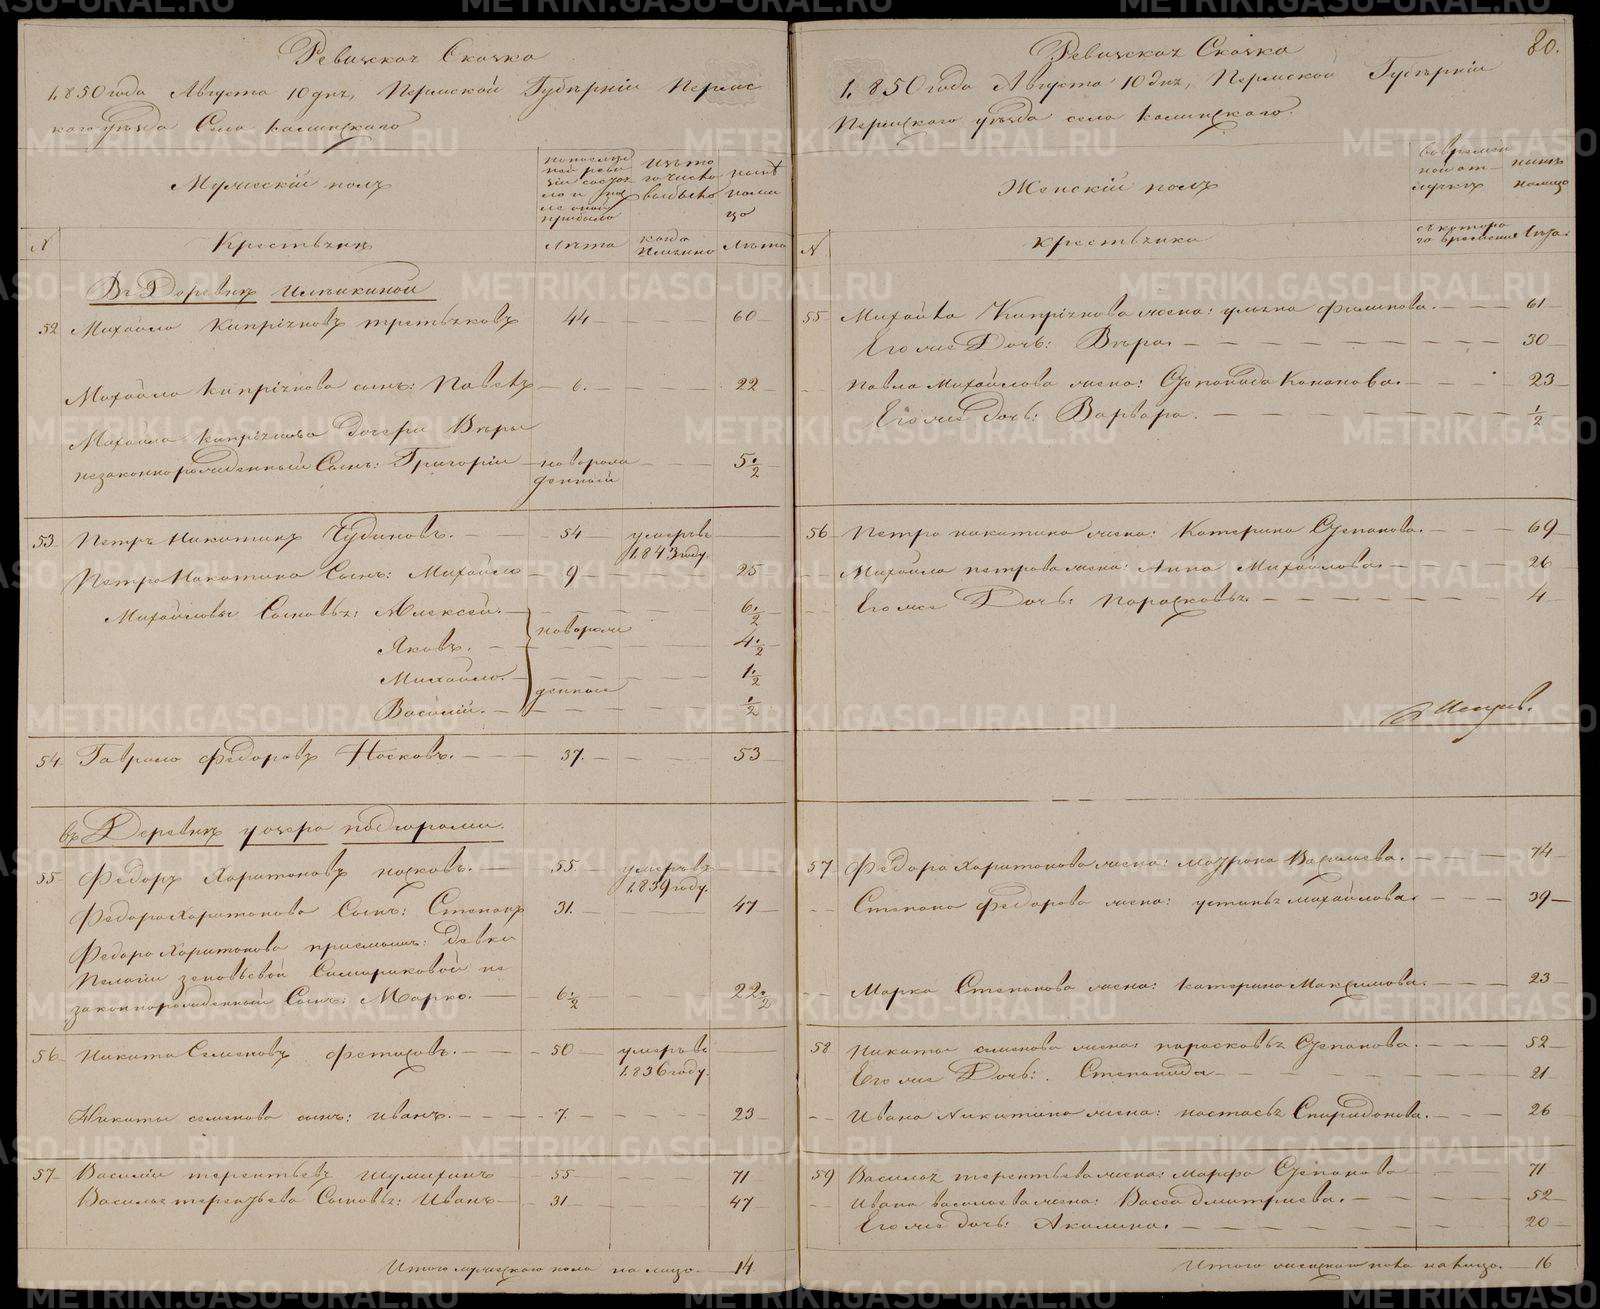 Ревизская Сказка
1850 года Августа 10 дня, Пермской Губѣрніи Пермс
каго уѣзда Села
Мужескій полъ
по послѣд
ней реви
зіи состоя
ло и пос
ле оной
прибыло
изъ то
го число
выбыло
нынѣ
на ли
цо
№
Крестьяня
Лѣта
когда
имѣнно
Лѣта
въ Деревня
52 Михайло Кипріяновъ третьяковъ 44 60
Михайла Кипріянова сынъ: Павелъ 6. 22
Михайла Кипріянова дочери Вѣры
незаконнорожденный Сынъ: Григорій новорож 5 1/2
денный
53 Петръ Никитинъ Чудиновъ. 54 умеръ въ
1843 году.
Петра Никитина Сынъ: Михайло 9 25
Михайловы Сыновья: Алексей. 6 1/2
новорож
Яковъ. 4 1/2
Михайло. 1 1/2
денные
Василій. 1/2
54 Гаврило Федоровъ Носковъ. 37. 53
въ Деревня у озера подгорами.
55 Федоръ Харитоновъ носковъ. 55. умеръ въ
1839 году.
Федора Харитонова Сынъ: Степанъ 31. 47
Федора Харитонова приемышъ: девки
Пелагіи зеновьевой Самариковой не
законнорожденный Сынъ: Марко. 6 1/2 22 1/2
56 Никита Семеновъ 50 умеръ въ
1836 году.
Никиты семенова сынъ: иванъ. 7. 23
57 Василій терентьевъ шумихинъ 55 71
Василья терентьева Сыновья: Иванъ 31 47
Итого мужескаго пола на лицо 14
80.
Ревизская Сказка
1850 года Августа 10 дня, Пермской Губѣрніи
Пермскаго уѣзда села
Женскій полъ
во времен
ной от
лучкѣ
нынѣ
на лицо
№
крестьянки
съ котора
го времени
Лѣта.
55 Михайла Кипріянова жена: ульяна филипова. 61
Его же Дочь: Вѣра. 30
Павла Михайлова жена: Степанида Кононова. 23
Его же дочь: Варвара. 1/2
56 Петра никитина жена: Катерина Степанова. 69
Михайла петрова жена: Анна Михайлова. 26
Его же Дочь: Парасковья. 4
57 Федора Харитонова жена: маурона Василева. 74
Степана федорова жена: устинья михайлова. 39
Марка Степанова жена: катерина Максимова. 23
58 Никиты семенова жена: парасковья Степанова. 52
Его же Дочь: Степанида 21
Ивана Никитина жена: настасья Спиридонова. 26
59 Василья терентьева жена: марфа Степанова 71
Ивана васильева жена: Васса дмитриева. 52
Его же дочь: Акилина. 20
Итого женскаго пола на лицо. 16
METRIKI.GASO-URAL.RU